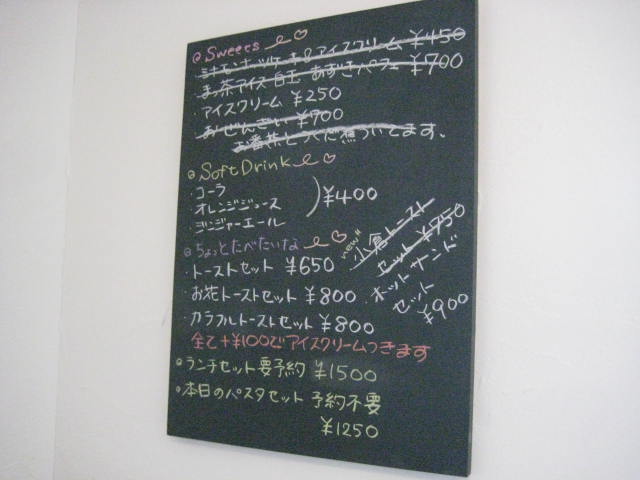 Sweets
シナモンホットケーキ アイスクリーム ¥450
まっ茶アイス白玉 あずきパフェ ¥700
・アイスクリーム ¥250
ぜんざい ¥700
お番茶とつくだ煮ついてます。
Soft Drink
・コーラ
・オレンジジュース
・ジンジャーエール
¥400
ちょっとたべたいな
・トーストセット ¥650
・お花トーストセット ¥800
・カラフルトーストセット ¥800
new!!
小倉トースト
セット ¥750
・ホットサンド
セット
¥900
全て+¥100でアイスクリームつきます
ランチセット要予約 ¥1500
本日のパスタセット 予約不要
¥1250